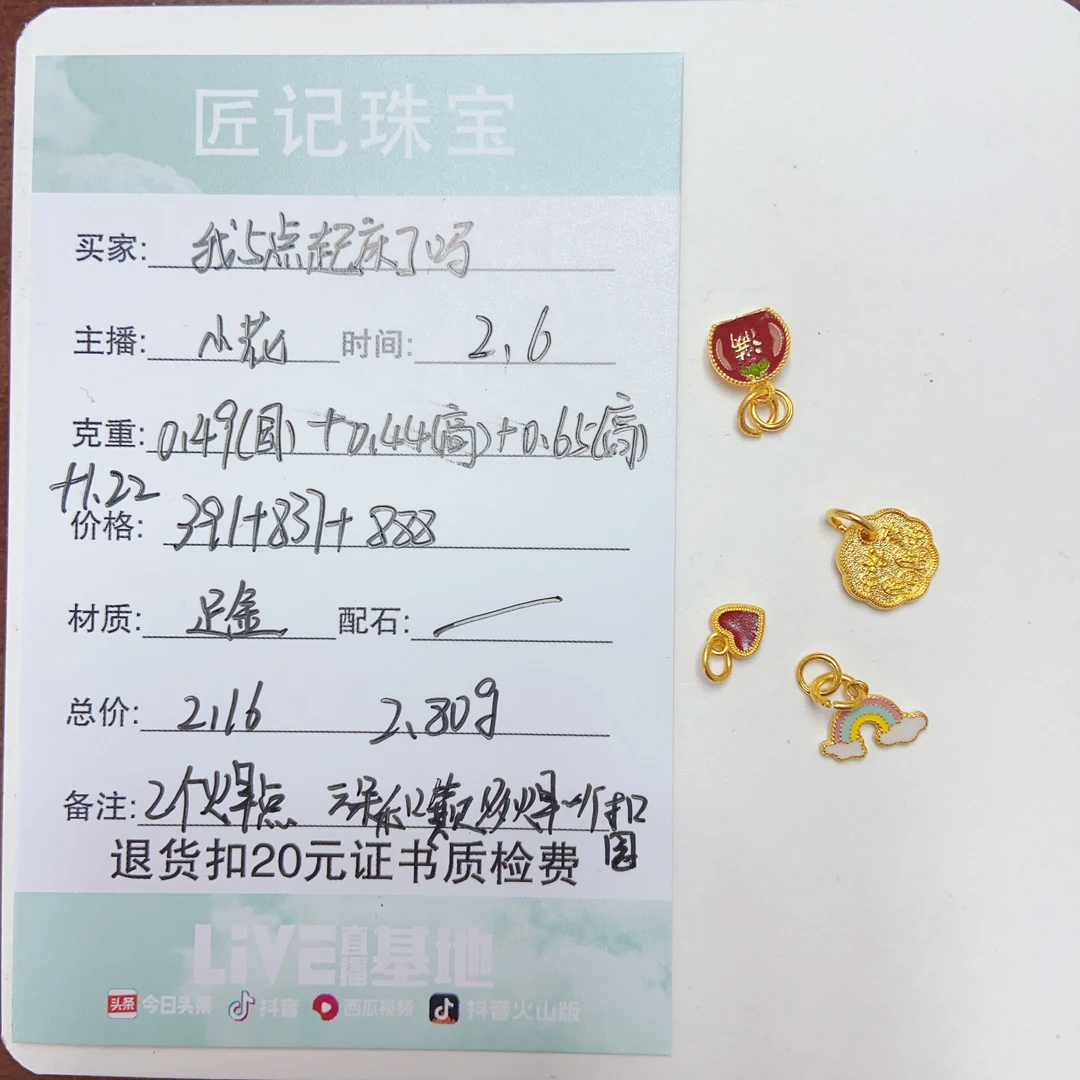 匠记珠宝
买家: 我5点起床了吗
主播: 小花 时间: 2.6
克重: 0.49(国)+0.44(高)+0.65(高)
+1.22
价格: 391+837+888
材质: 足金 配石: /
总价: 2116 2.80g
备注: 2个焊点 和 多焊一个扣
圈
退货扣20元证书质检费
LiVE直播基地
头条 今日头条 抖音 西瓜视频 抖音火山版
满